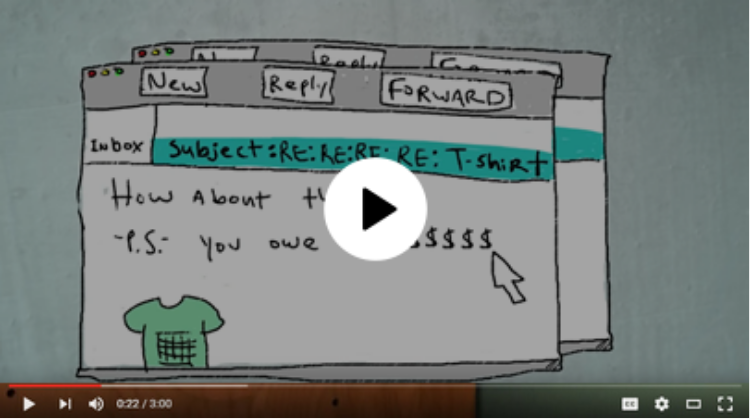 New Reply FORWARD
Inbox
Subject: RE: RE: RE: RE: T-shirt
How About
-P.S.- you owe $$$$$
0:22 / 3:00
CC